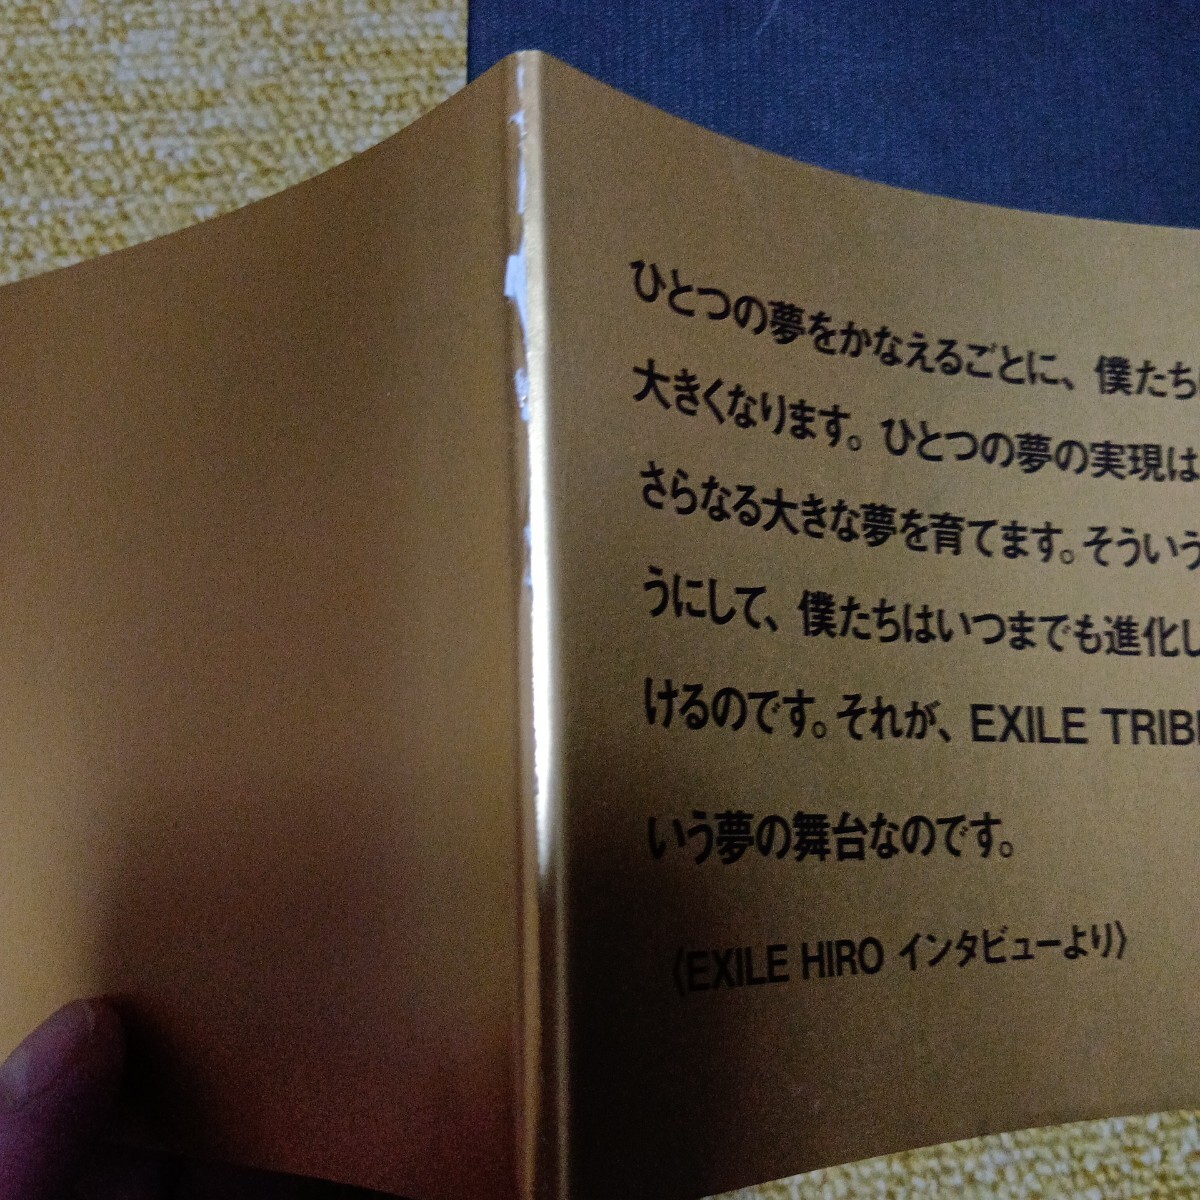 ひとつの夢をかなえるごとに、僕たち
大きくなります。ひとつの夢の実現は
さらなる大きな夢を育てます。そういう
うにして、僕たちはいつまでも進化し
けるのです。それが、EXILE TRIB
いう夢の舞台なのです。
〈EXILE HIRO インタビューより〉